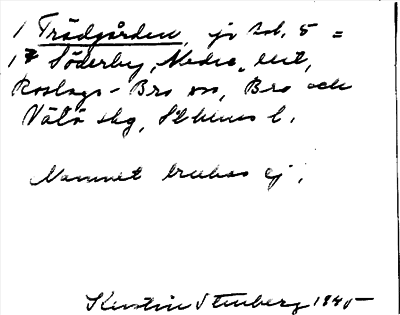 1 Trädgården, jr bsk. 5 =
1⁷ Söderby, Nedre,
Roslags-Bro sn, Bro och
Vätö skg, Sthlms l.
Namnet brukas ej.
Kerstin Stenberg 1945